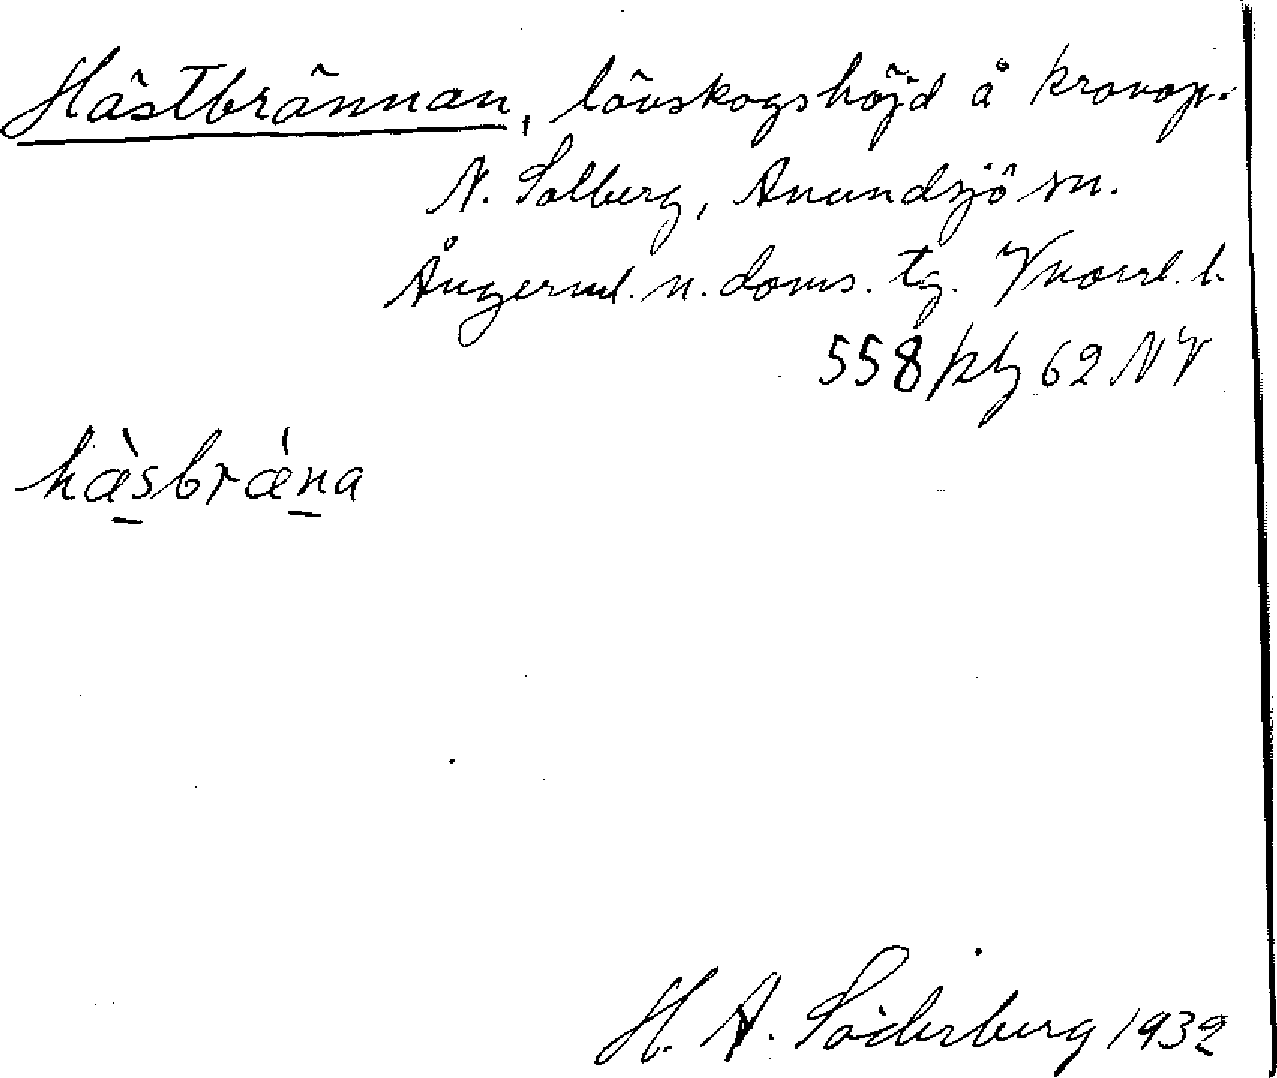 Hästbrännan, lövskogshöjd å kronop.
N. Solberg, Anundsjö sn.
Ångerml. n. doms. tg. Vnorrl. l.
558 kbl 62 NV
hæ̀sbrǽna
H. A. Söderberg 1932